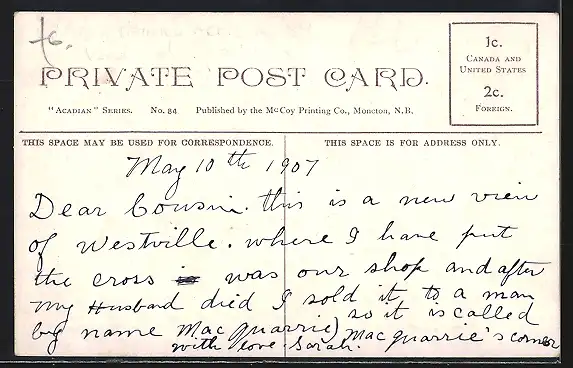 1c.
CANADA AND
UNITED STATES
2c.
FOREIGN.
PRIVATE POST CARD.
"ACADIAN" SERIES. No. 84 Published by the McCoy Printing Co., Moncton, N.B.
THIS SPACE MAY BE USED FOR CORRESPONDENCE. THIS SPACE IS FOR ADDRESS ONLY.
May 10th 1907
Dear Cousin. this is a new view
of Westville. where I have put
the cross was our shop and after
my Husband died I sold it to a man
by name Mac quarrie) so it is called
Mac quarrie's corner
with love Sarah.